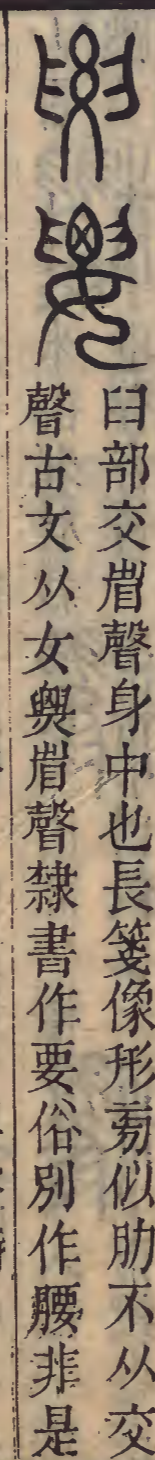 臼部交省聲身中也長箋像形旁似肋不从交
聲古文从女與省聲隸書作要俗別作腰非是